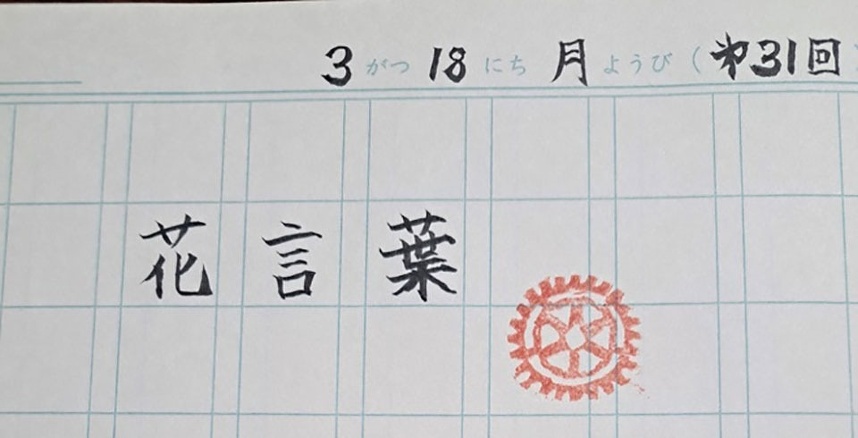 3がつ18にち 月ようび(㐧31回)
花言葉